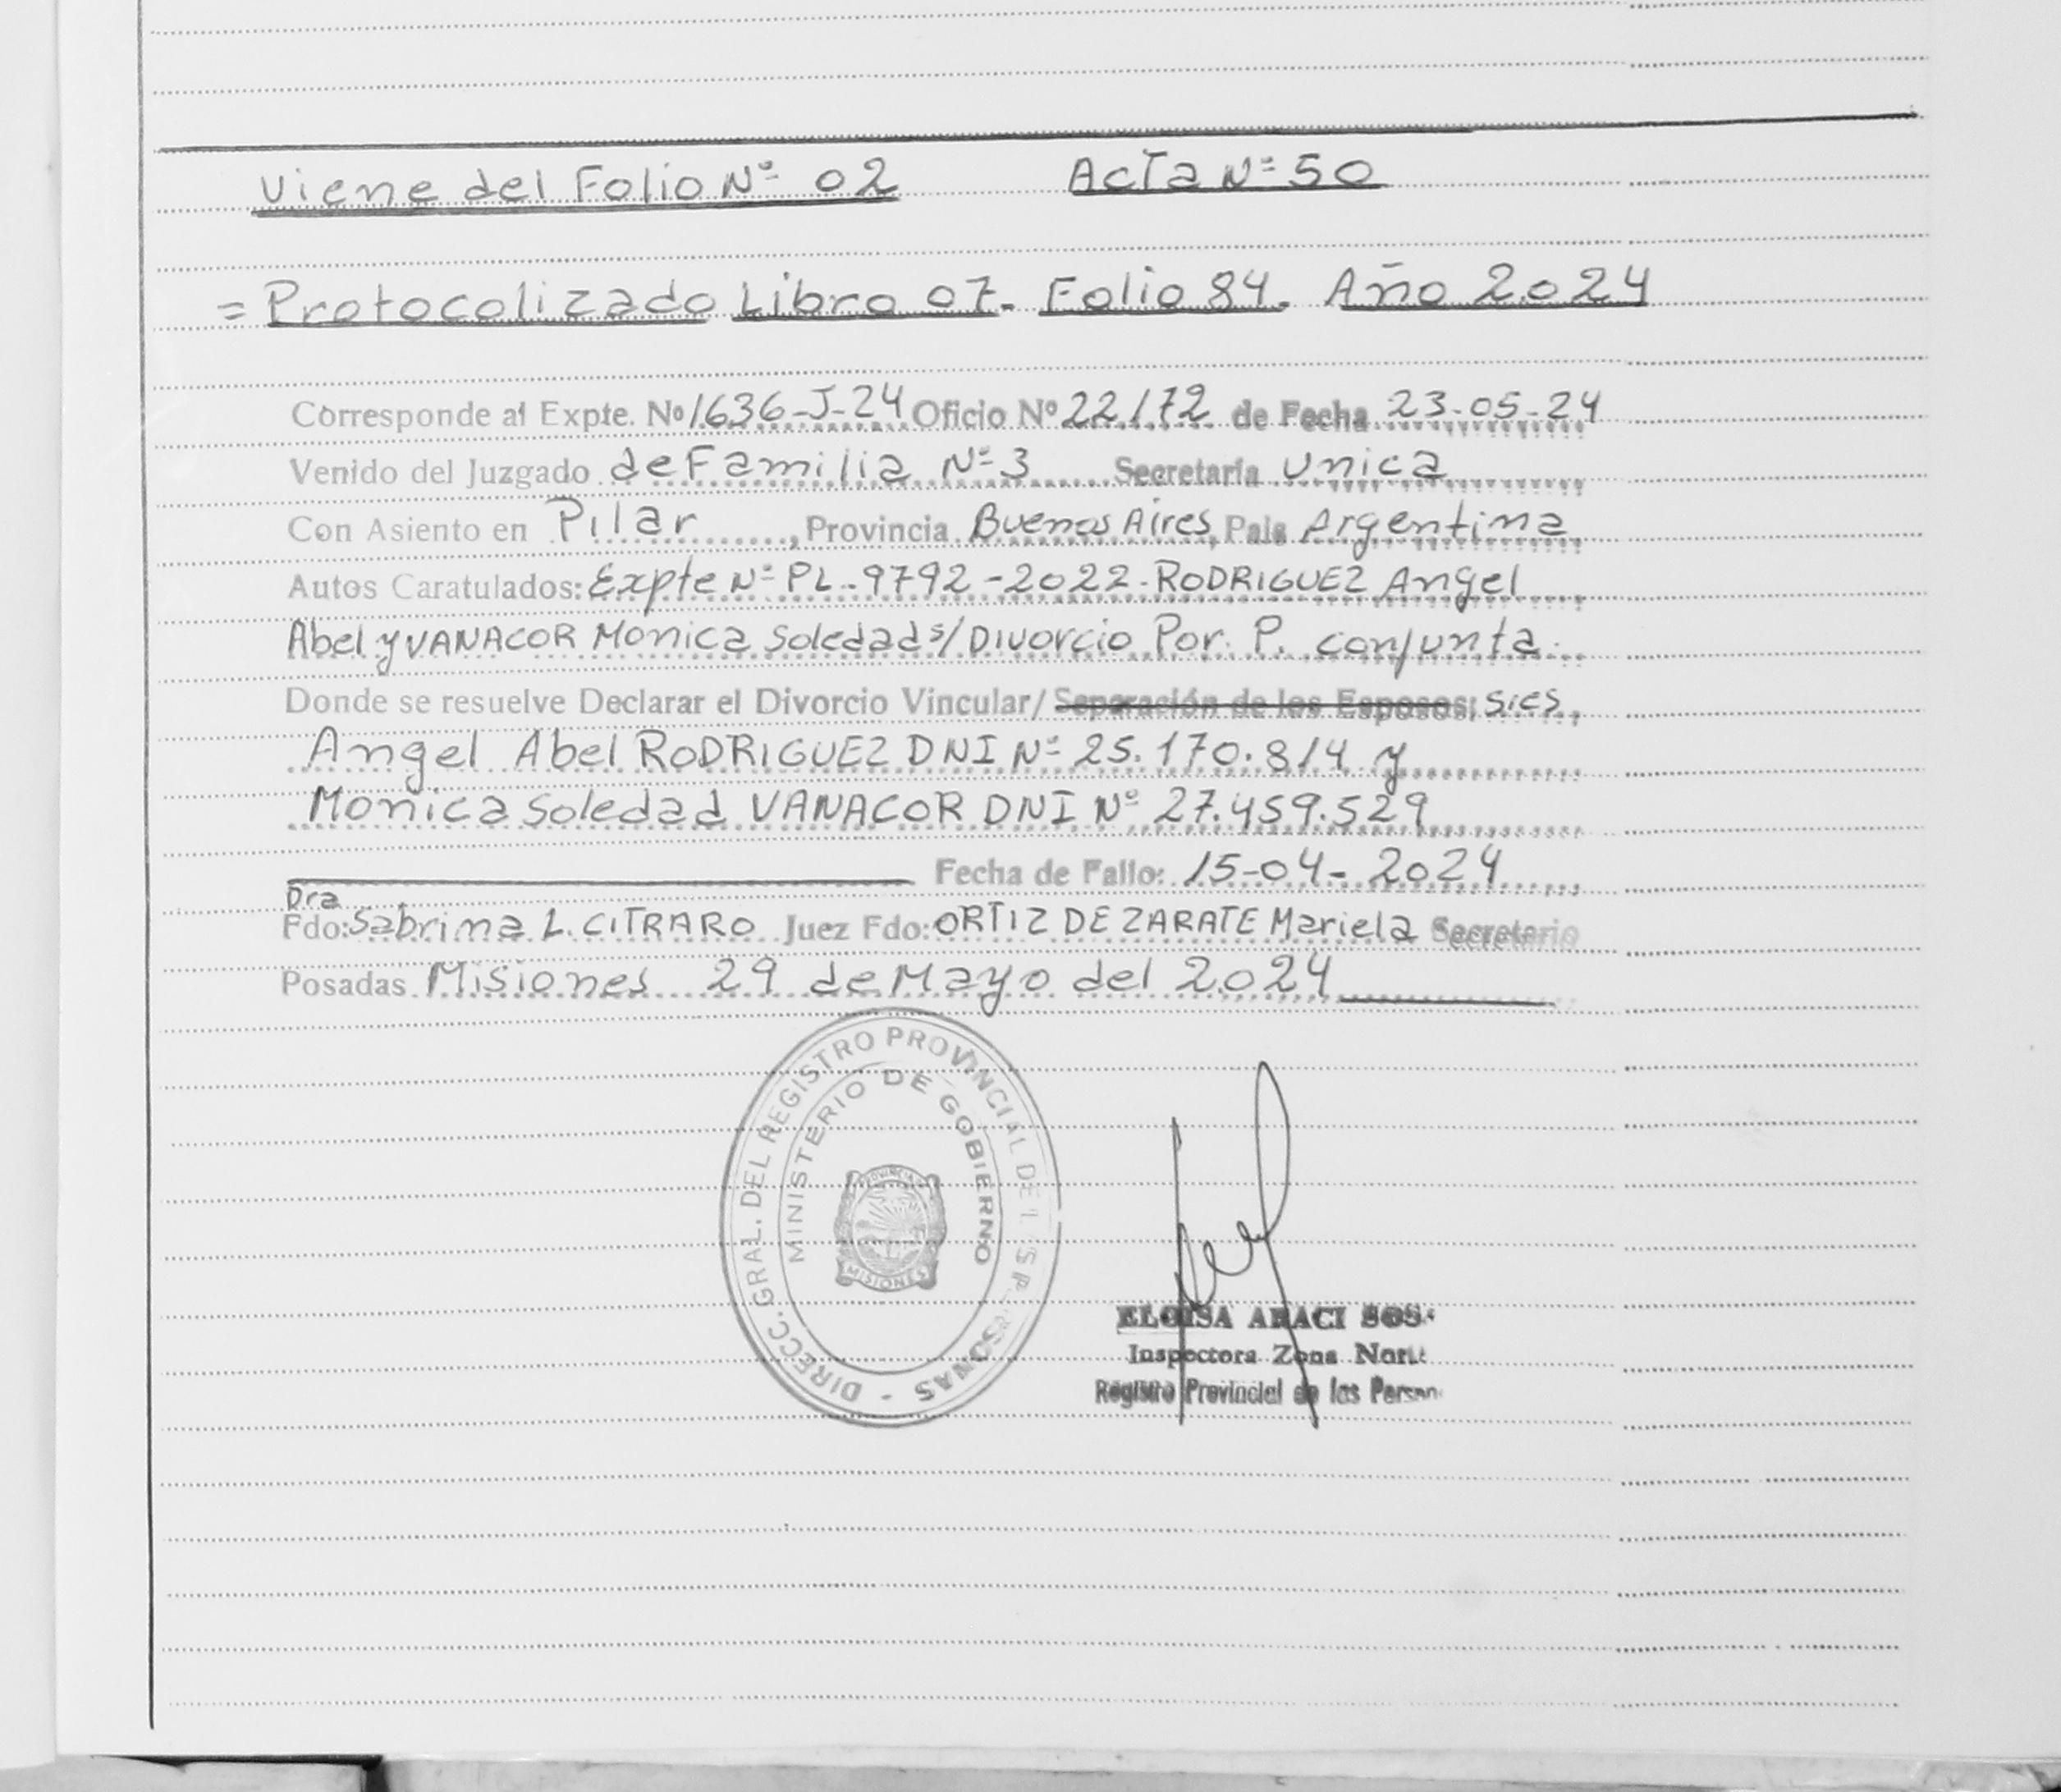 Viene del Folio Nº 02 Acta Nº 50
= Protocolizado Libro 07. Folio 84. Año 2024
Corresponde al Expte. Nº 1636-J-24 Oficio Nº 22172 de Fecha 23-05-24
Venido del Juzgado de Familia Nº 3 Secretaría Unica
Con Asiento en Pilar, Provincia Buenos Aires, País Argentina,
Autos Caratulados: Expte Nº PL-9792-2022. RODRIGUEZ Angel
Abel y VANACOR Monica Soledad s/Divorcio Por. P. conjunta.
Donde se resuelve Declarar el Divorcio Vincular/ Separación de los Esposos; sres,
Angel Abel RODRIGUEZ DNI Nº 25.170.814 y
Monica Soledad VANACOR DNI Nº 27.459.529
Fecha de Fallo: 15-04-2024
Dra
Fdo: Sabrina L. CITRARO Juez Fdo: ORTIZ DE ZARATE Mariela Secretario
Posadas Misiones 29 de Mayo del 2024
DIRECC. GRAL. DEL REGISTRO PROVINCIAL DE L S PERSONAS -
MINISTERIO DE GOBIERNO
PROVINCIA
MISIONES
ELOISA ARACI
Inspectora Zona
Registro Provincial de las